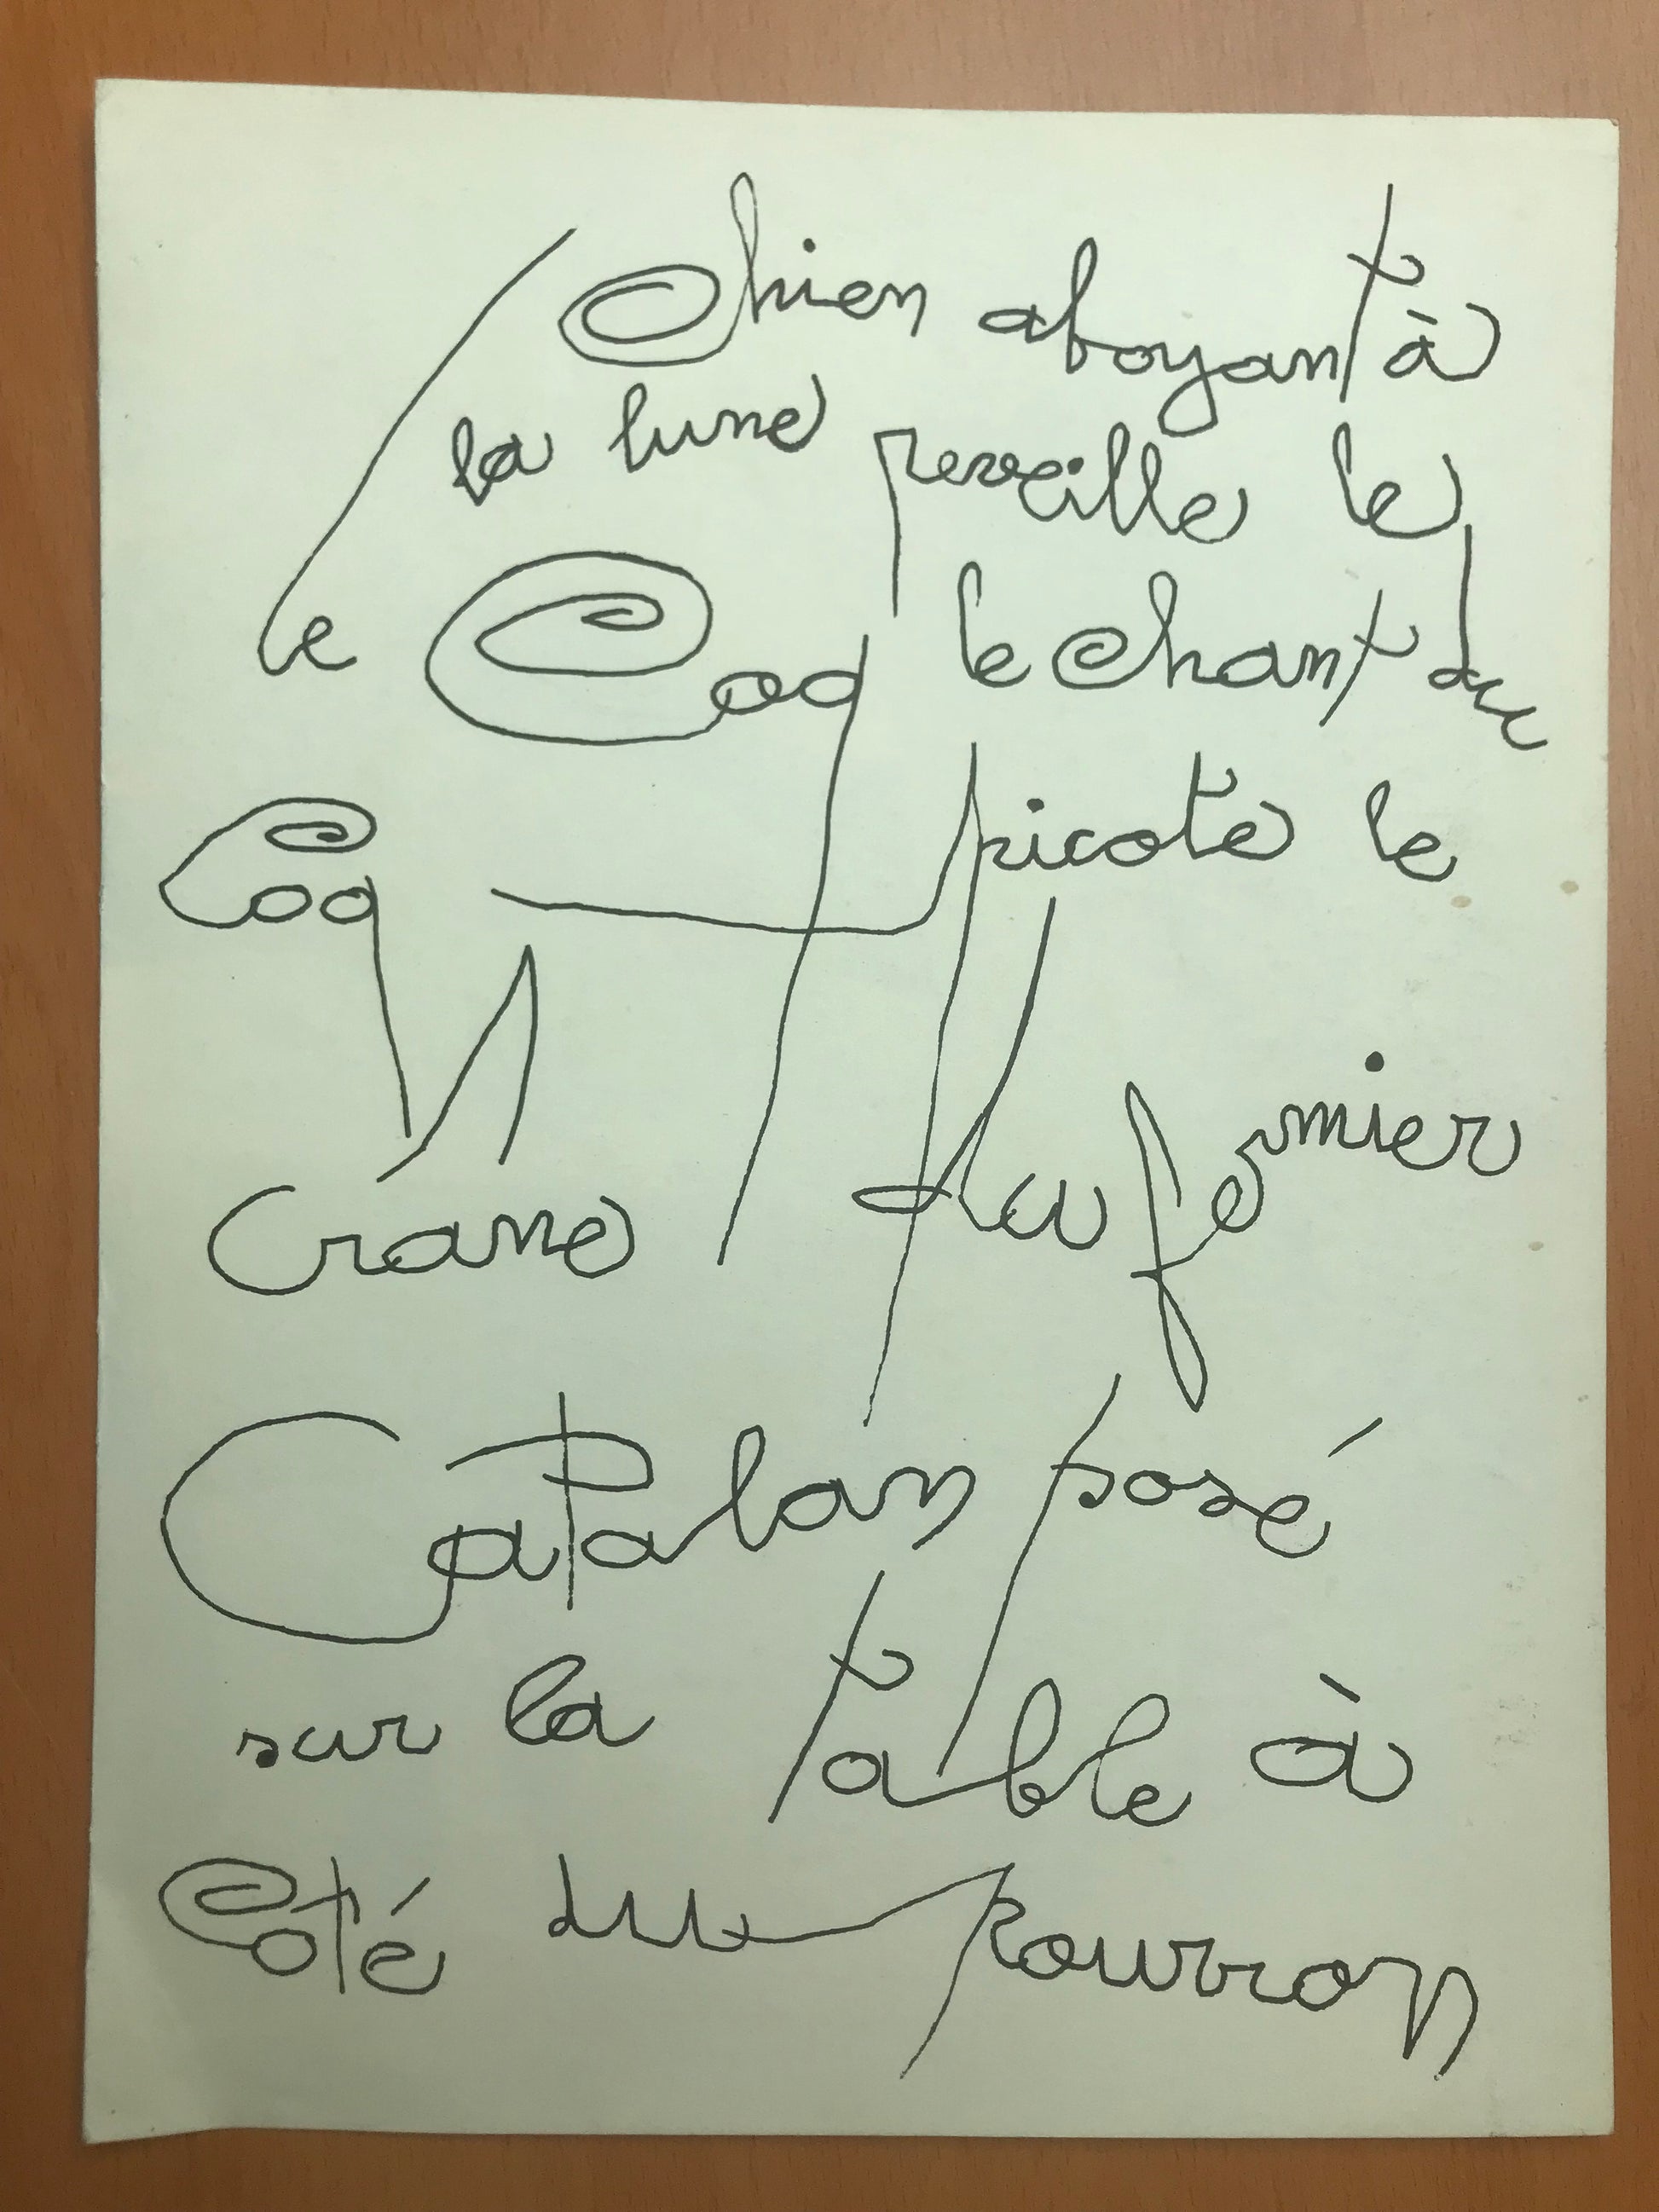 Chien aboyant à
la lune reveille le
le Coq le chant du
Coq picote le
Crâne du fermier
Catalan posé
sur la table à
Coté du pourron